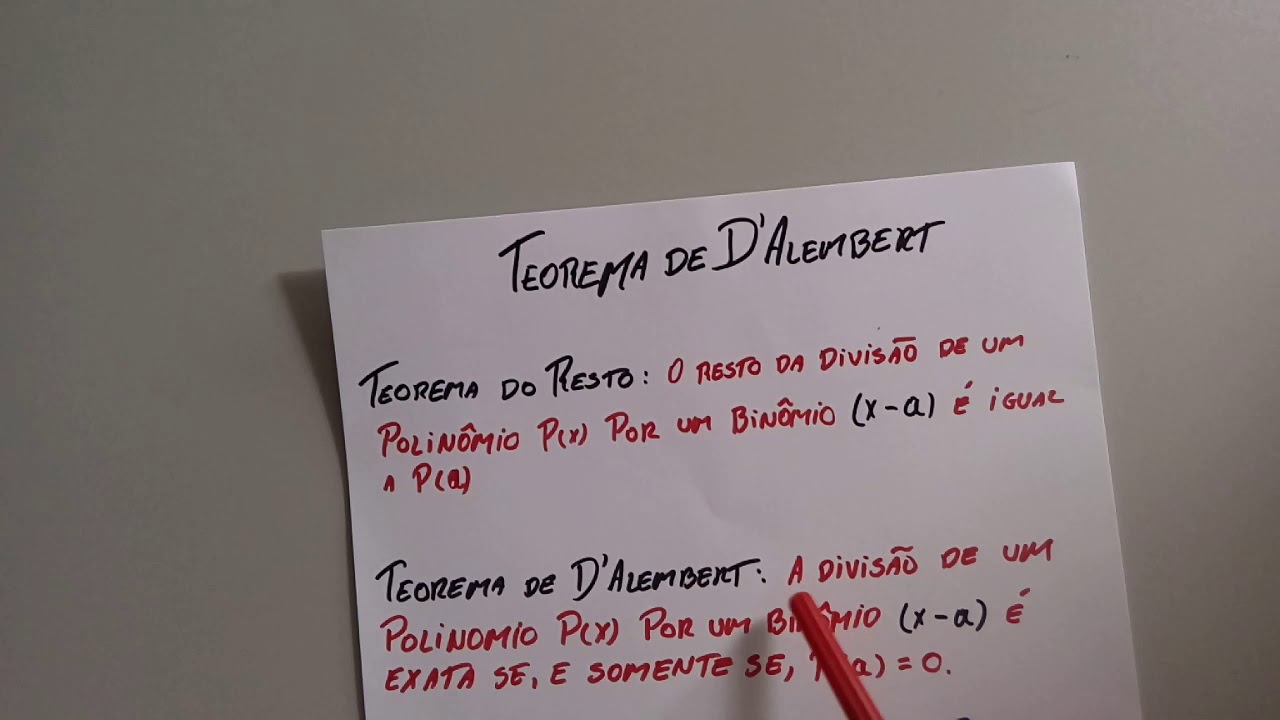 TEOREMA DE D'ALEMBERT
TEOREMA DO RESTO: O RESTO DA DIVISÃO DE UM
POLINÔMIO P(X) POR UM BINÔMIO (x-a) É IGUAL
A P(a)
TEOREMA DE D'ALEMBERT: A DIVISÃO DE UM
POLINOMIO P(X) POR UM BINÔMIO (x-a) É
EXATA SE, E SOMENTE SE, P(a) = 0.